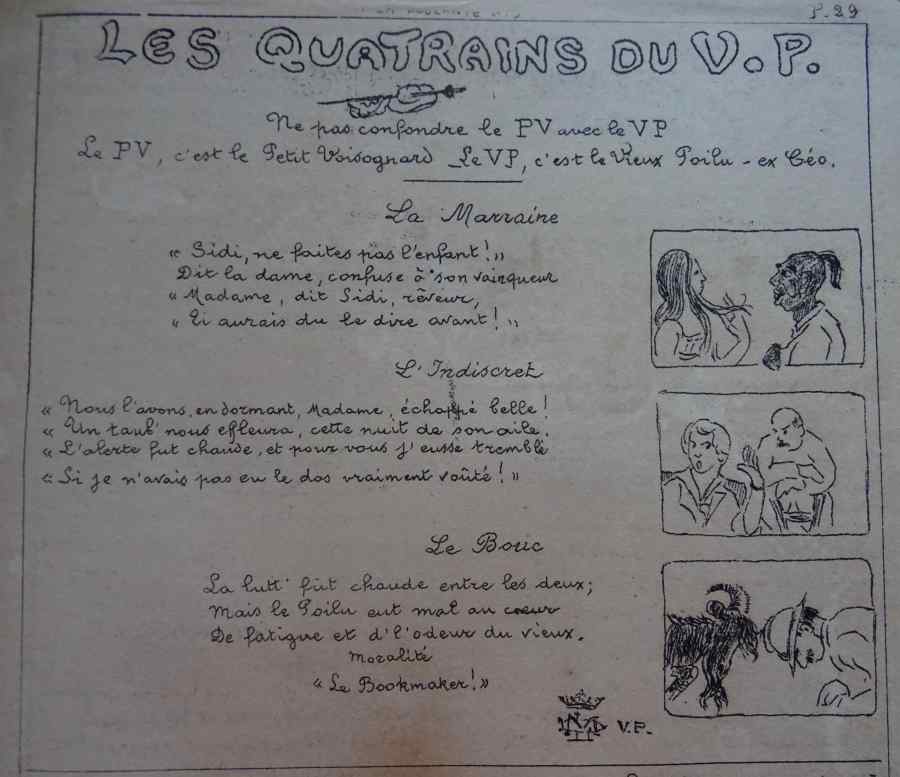 P. 29
LES QUATRAINS DU V.P.
Ne pas confondre le PV avec le VP
Le PV, c'est le Petit Voisognard _ Le VP, c'est le Vieux Poilu - ex Géo.
La Marraine
« Sidi, ne faites pas l'enfant! »
Dit la dame, confuse à son vainqueur
« Madame, dit Sidi, rêveur,
« Ti aurais du le dire avant! »
L'Indiscret
« Nous l'avons, en dormant, Madame, échappé belle!
« Un taub' nous effleura, cette nuit de son aile.
« L'alerte fut chaude, et pour vous j'eusse tremblé
« Si je n'avais pas eu le dos vraiment voûté! »
Le Bouc
La lutt' fut chaude entre les deux;
Mais le Poilu eut mal au coeur
De fatigue et d'l'odeur du vieux.
Moralité
« Le Bookmaker! »
V.P.